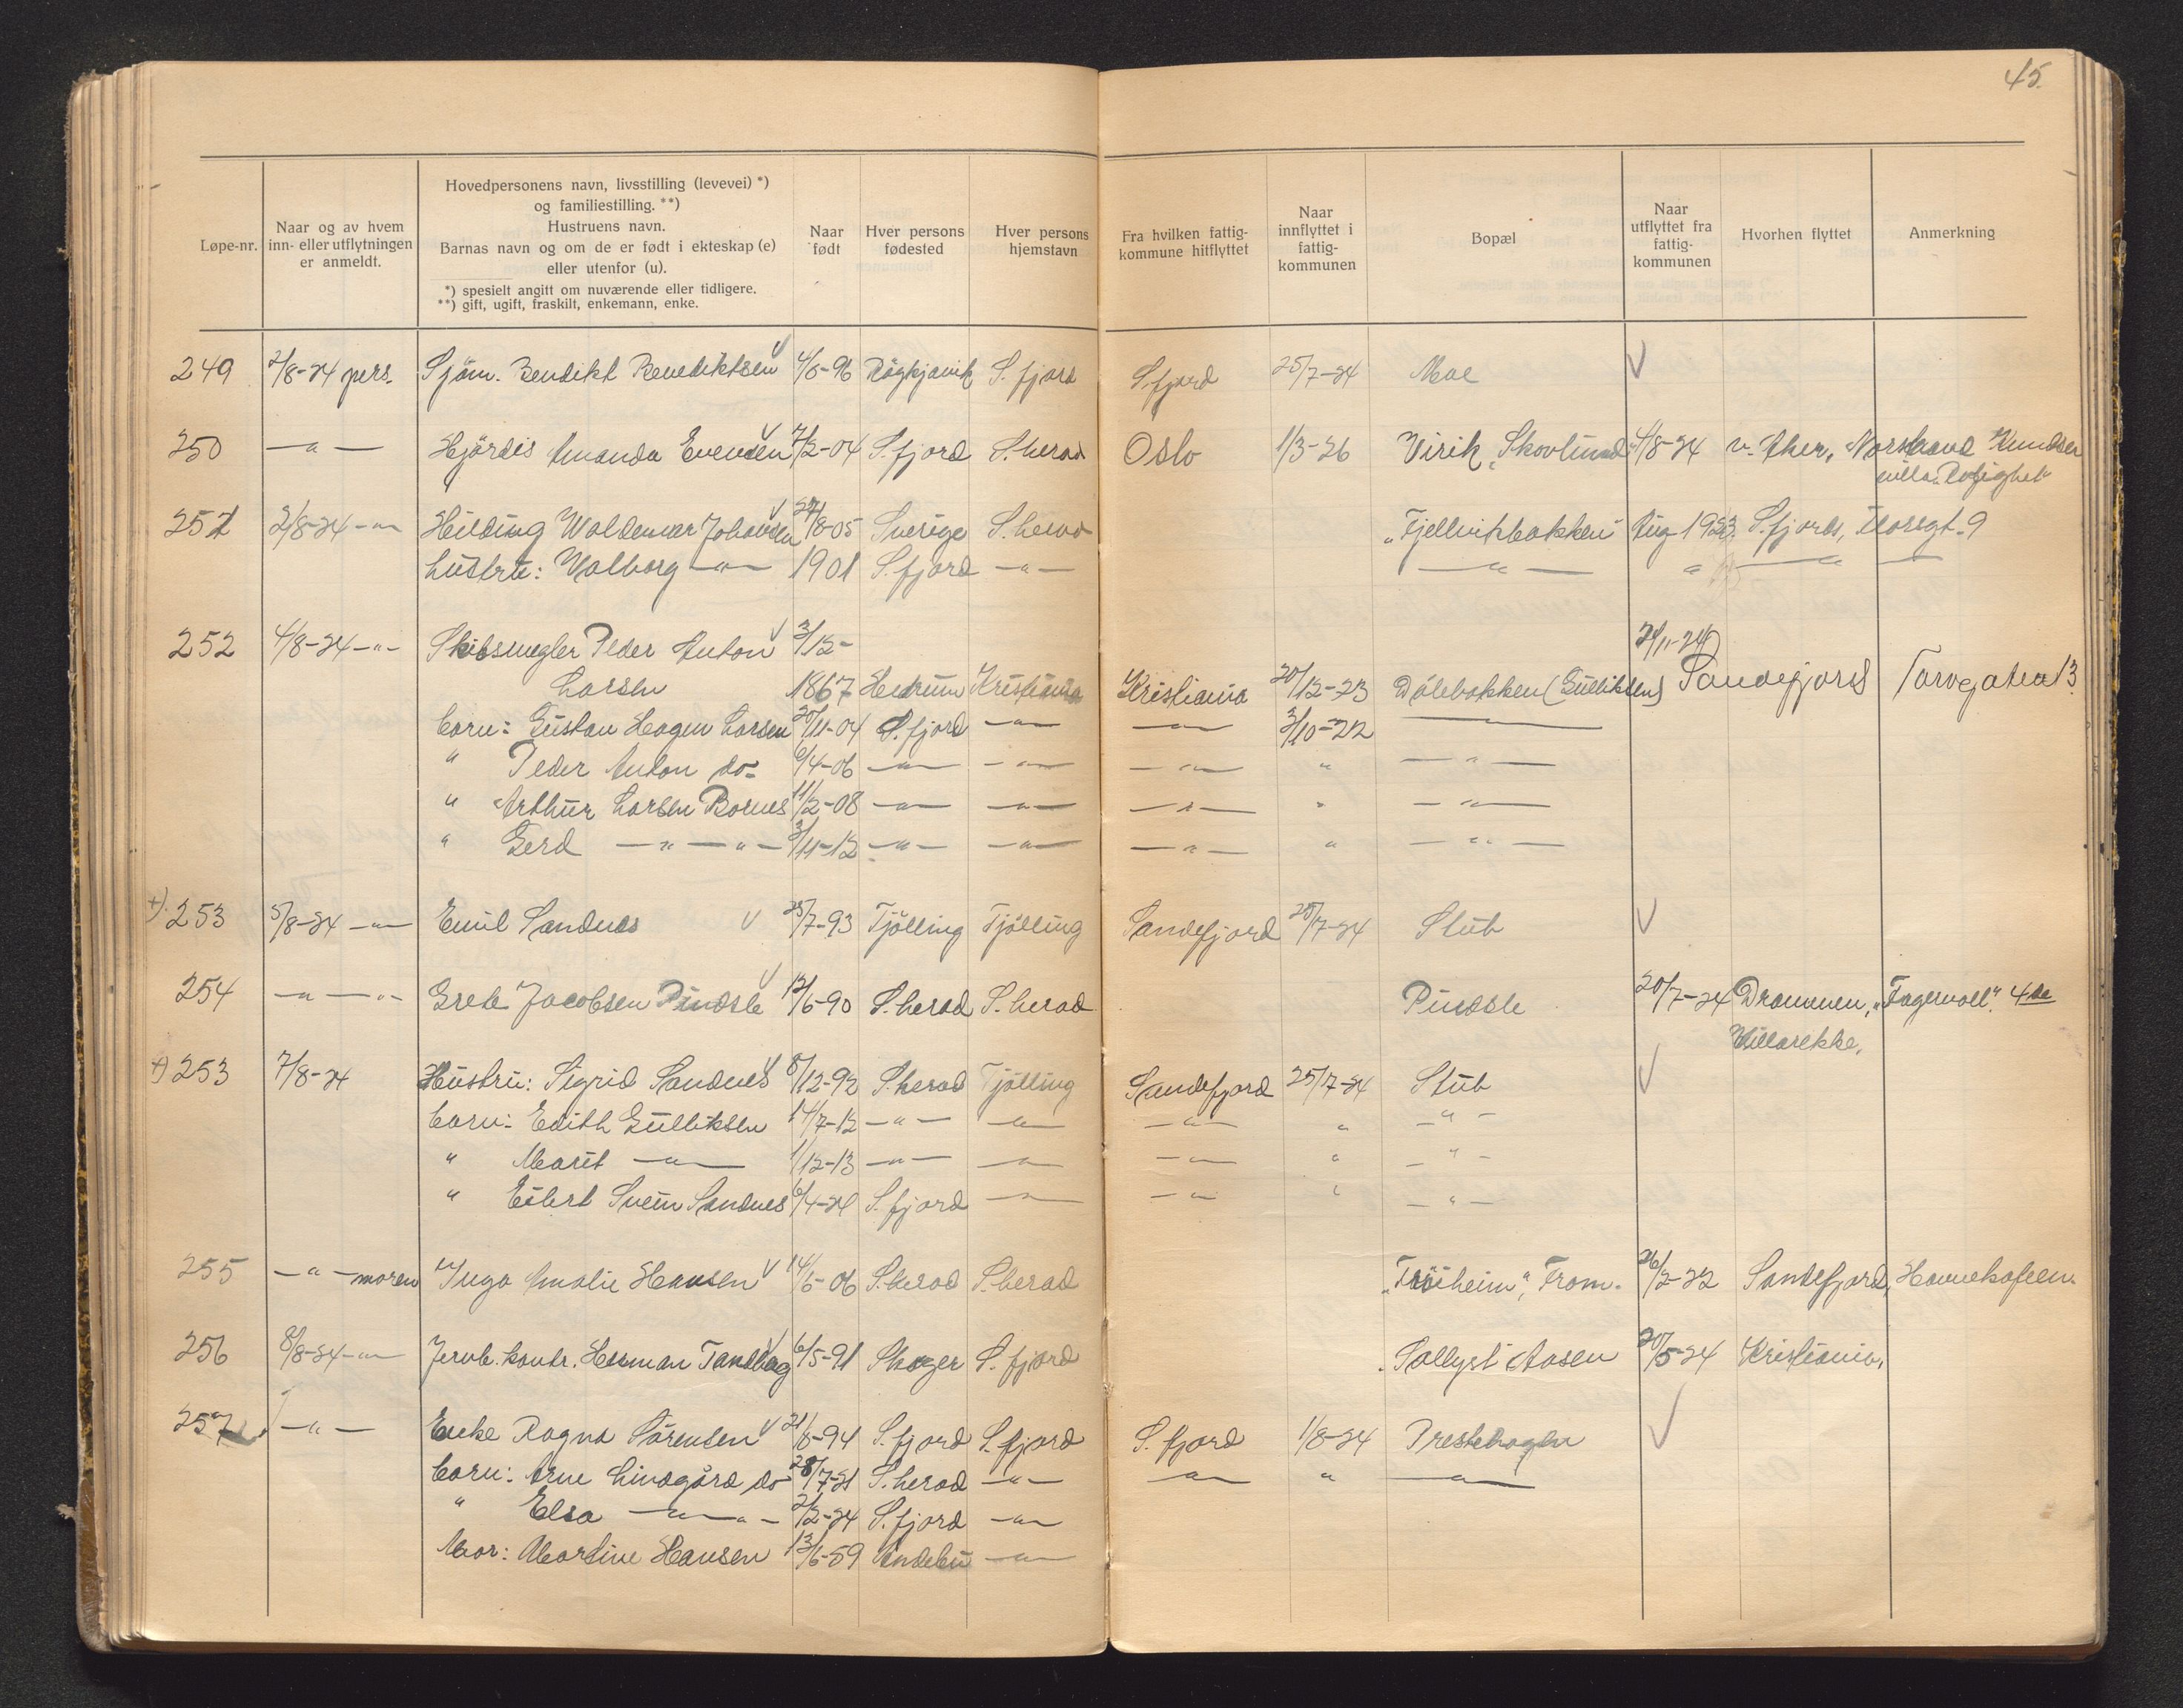 45.
Løpe-nr.
Naar og av hvem inn- eller utflytningen er anmeldt.
Hovedpersonens navn, livsstilling (levevei) *)
og familiestilling. **)
Hustruens navn.
Barnas navn og om de er født i ekteskap (e)
eller utenfor (u).
*) spesielt angitt om nuværende eller tidligere.
**) gift, ugift, fraskilt, enkemann, enke.
Naar født
Hver persons fødested
Hver persons hjemstavn
Fra hvilken fattig-kommune hitflyttet
Naar innflyttet i fattig-kommunen
Bopæl
Naar utflyttet fra fattig-kommunen
Hvorhen flyttet
Anmerkning
249 2/8-24 pers. Sjöm. Bendikt Benediktsen 4/8-96 S. fjord S. fjord 25/7-24 Moe √
250 —"— Hjördis Amanda Evensen 7/2-04 S. fjord S. herad Oslo 1/3-26 Virik, "Skovlund" 4/8-24 v. Aker, Norstrand Knudsen
villa "Rolighet"
251 2/8-24 —"— Hilding Woldemar Johansen 27/8-05 Sverige S. herad "Fjellvikbakken" Aug 1923. S. fjord, 9
hustru: Valborg —"— 1901 S. fjord —"— —"— " —"—
252 4/8-24 -"- Skibsmegler Peder Anton 3/12- 24/11-24
Larsen 1867 Hedrum Kristiania Kristiania 20/12-23 Dölebakken (Gulliksen) Sandefjord Torvgaten 13.
barn: Gustav Hagen Larsen 20/11-04 S. fjord —"— —"— 3/10-22 —"—
" Peder Anton do- 6/4-06 —"— —"— —"— " —"—
" Arthur Larsen Bornes 11/2-08 —"— —"— —"— " —"—
" Gerd —"—"— 3/11-12 —"— —"— —"— " —"—
+) 253 5/8-24 —"— Emil Sandnes √ 25/7-93 Tjölling Tjölling Sandefjord 25/7-24 Stub √
254 —"—"- Grete Jacobsen Pindsle 12/6-90 S. herad S. herad Pindsle 20/7-24 Drammen, "Fagervoll". 4de
Villarekke.
+) 253 7/8-24 Hustru: Sigrid Sandnes 8/12-92 S. herad Tjölling Sandefjord 25/7-24 Stub √
barn: Edith Gulliksen 14/7-12 —"— —"— —"— " —"—
" Marit —"— 1/12-13 —"— —"— —"— " —"—
" Eilert Svein Sandnes 6/4-24 S. fjord —"— —"— " —"—
255 —"— moren Inga Amalie Hansen √ 14/6-06 S. herad S. herad "Fram. 26/2-22 Sandefjord,
256 8/8-24 —"— Jernb. kontr. Herman Tandberg 6/5-91 Skoger S. fjord Sollyst Aasen 20/5-24 Kristiania,
257 —"— Enke Ragna Sörensen √ 21/8-94 S. fjord S. fjord S. fjord 1/8-24 Prestehagen √
barn: Arne Lindgård do- 28/7-21 S. herad —"— —"— " —"—
" Elsa —"—"— 2/2-24 S. fjord —"—
Mor: Martine Hansen 13/6-59 Andebu —"—